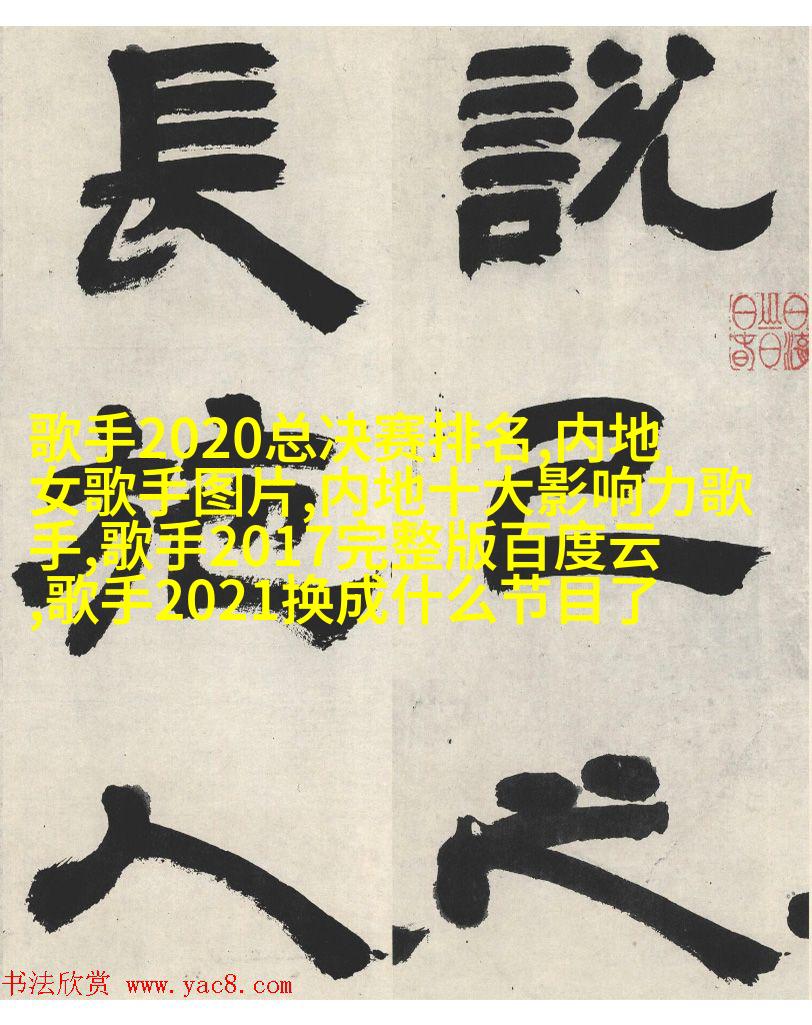 說己之
長施人
歌手2020总决赛排名,内地
女歌手图片,内地十大影响力歌
手,歌手2017完整版百度云
,歌手2021换成什么节目了
书法欣赏 www.yac8.com